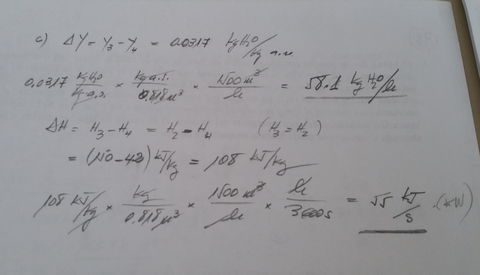 c) ΔY = Y₃ - Y₄ = 0.0317 kg H₂O / kg a.s.
0.0317 kg H₂O / kg a.s. × kg a.s. / 0.818 m³ × 1500 m³ / h = 58.1 kg H₂O / h
ΔH = H₃ - H₄ = H₂ - H₄ (H₃ = H₂)
= (150 - 42) kJ/kg = 108 kJ/kg
108 kJ/kg × kg / 0.818 m³ × 1500 m³ / h × h / 3600 s = 55 kJ / s (kW)